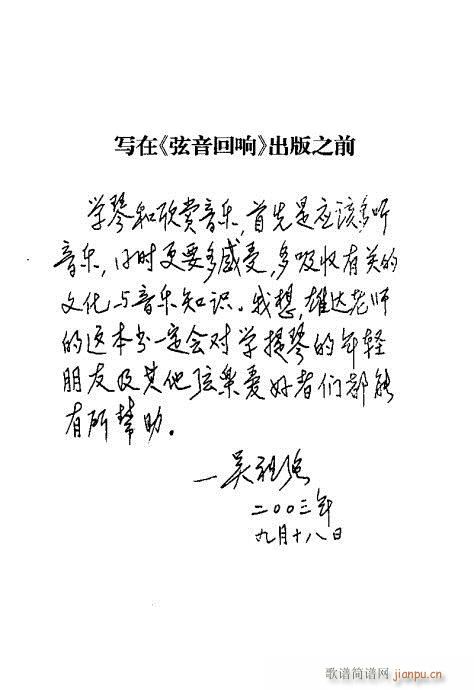 写在《弦音回响》出版之前
学琴和欣赏音乐,首先是应该多听
音乐,同时更要多感受,多吸收有关的
文化与音乐知识。我想,雄达老师
的这本书一定会对学提琴的年轻
朋友及其他弦樂爱好者们都能
有所幫助。
—吴祖强
二〇〇三年
九月十八日
歌谱简谱网
jianpu.cn